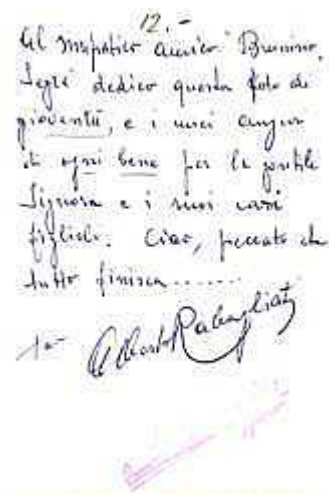 12.-
Al simpatico amico Brunino
Segre dedico questa foto di
gioventù, e i miei auguri
di ogni bene per la gentile
Signora e i suoi cari
figlioli. Ciao, peccato che
tutto finisca.......
Alberto Rabagliati